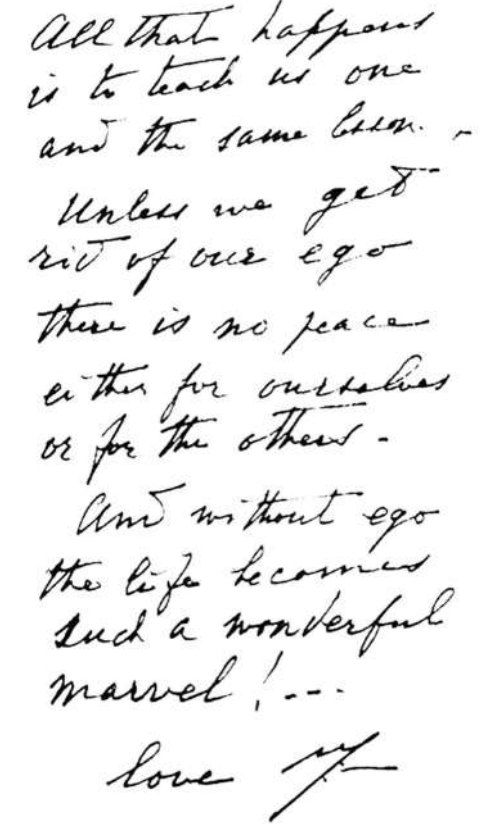 All that happens
is to teach us one
and the same lesson. -
Unless we get
rid of our ego
there is no peace
either for ourselves
or for the others -
And without ego
the life becomes
such a wonderful
marvel! ...
love